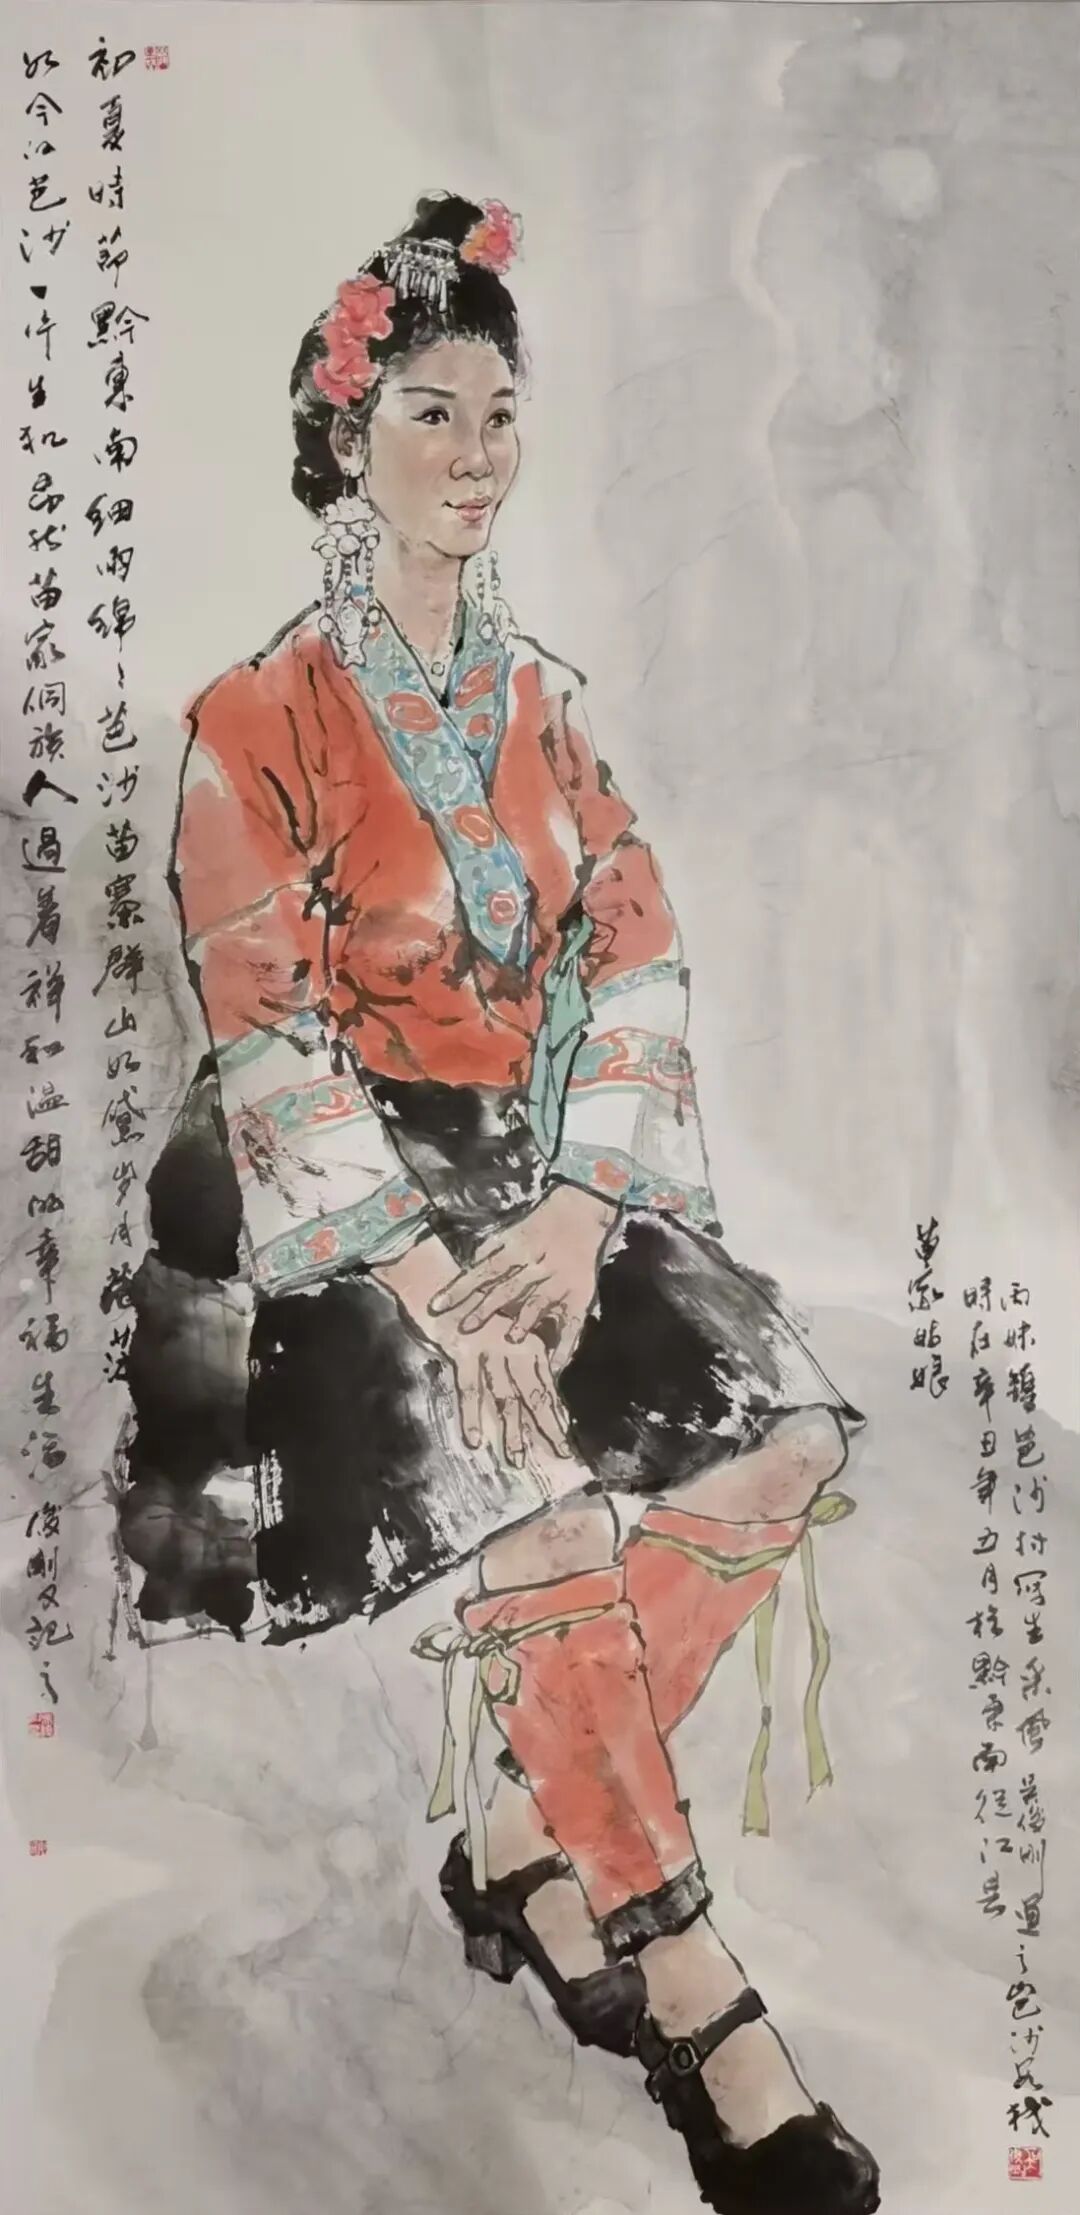 初夏時節黔東南細雨綿〻芭沙苗寨群山如黛岁月蒼茫
如今的芭沙一片生机昂然苗家侗族人過着祥和温甜的幸福生活 俊刚又記之
苗家姑娘
時在辛丑年五月於黔東南從江县
丙妹鎮芭沙村写生采風 吴俊刚画之芭沙